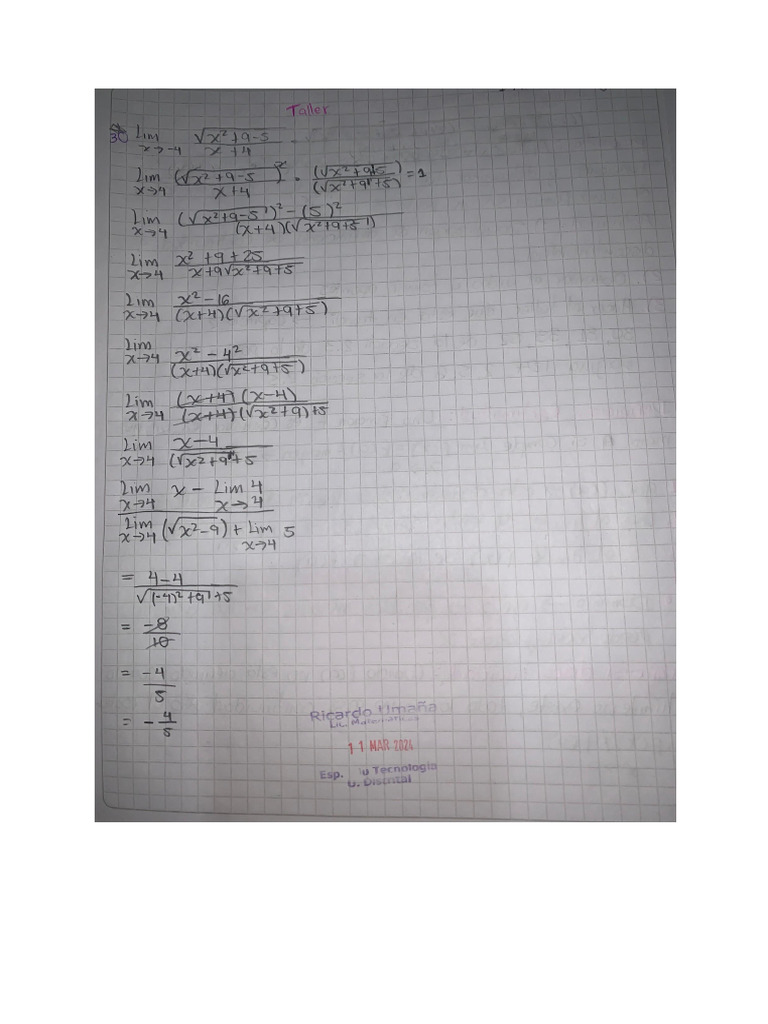 Taller
30 Lim x→-4 √x²+9-5 / x+4
Lim x→4 (√x²+9-5)² / x+4 · (√x²+9+5) / (√x²+9+5) = 1
Lim x→4 (√x²+9-5)² - (5)² / (x+4)(√x²+9+5)
Lim x→4 x² + 9 + 25 / x+9√x²+9+5
Lim x→4 x² - 16 / (x+4)(√x²+9+5)
Lim x→4 x² - 4² / (x+4)(√x²+9+5)
Lim x→4 (x+4)(x-4) / (x+4)(√x²+9)+5
Lim x→4 x-4 / (√x²+9+5
Lim x→4 x - Lim x→4 4 / Lim x→4 (√x²-9) + Lim x→4 5
= 4-4 / √(-4)²+9+5
= -8 / 10
= -4 / 5
= - 4/5
Ricardo Umaña
Lic. Matemática
11 MAR 2024
Esp. Tecnología
U. Distrital